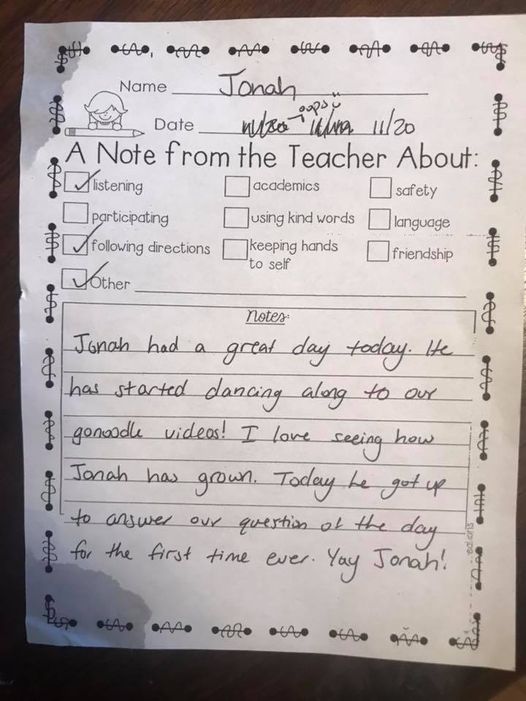 Name Jonah
oops
Date 11/20
A Note from the Teacher About:
listening academics safety
participating using kind words language
following directions keeping hands to self friendship
Other
Notes:
Jonah had a great day today. He
has started dancing along to our
gonoodle videos! I love seeing how
Jonah has grown. Today he got up
to answer our question of the day
for the first time ever. Yay Jonah!